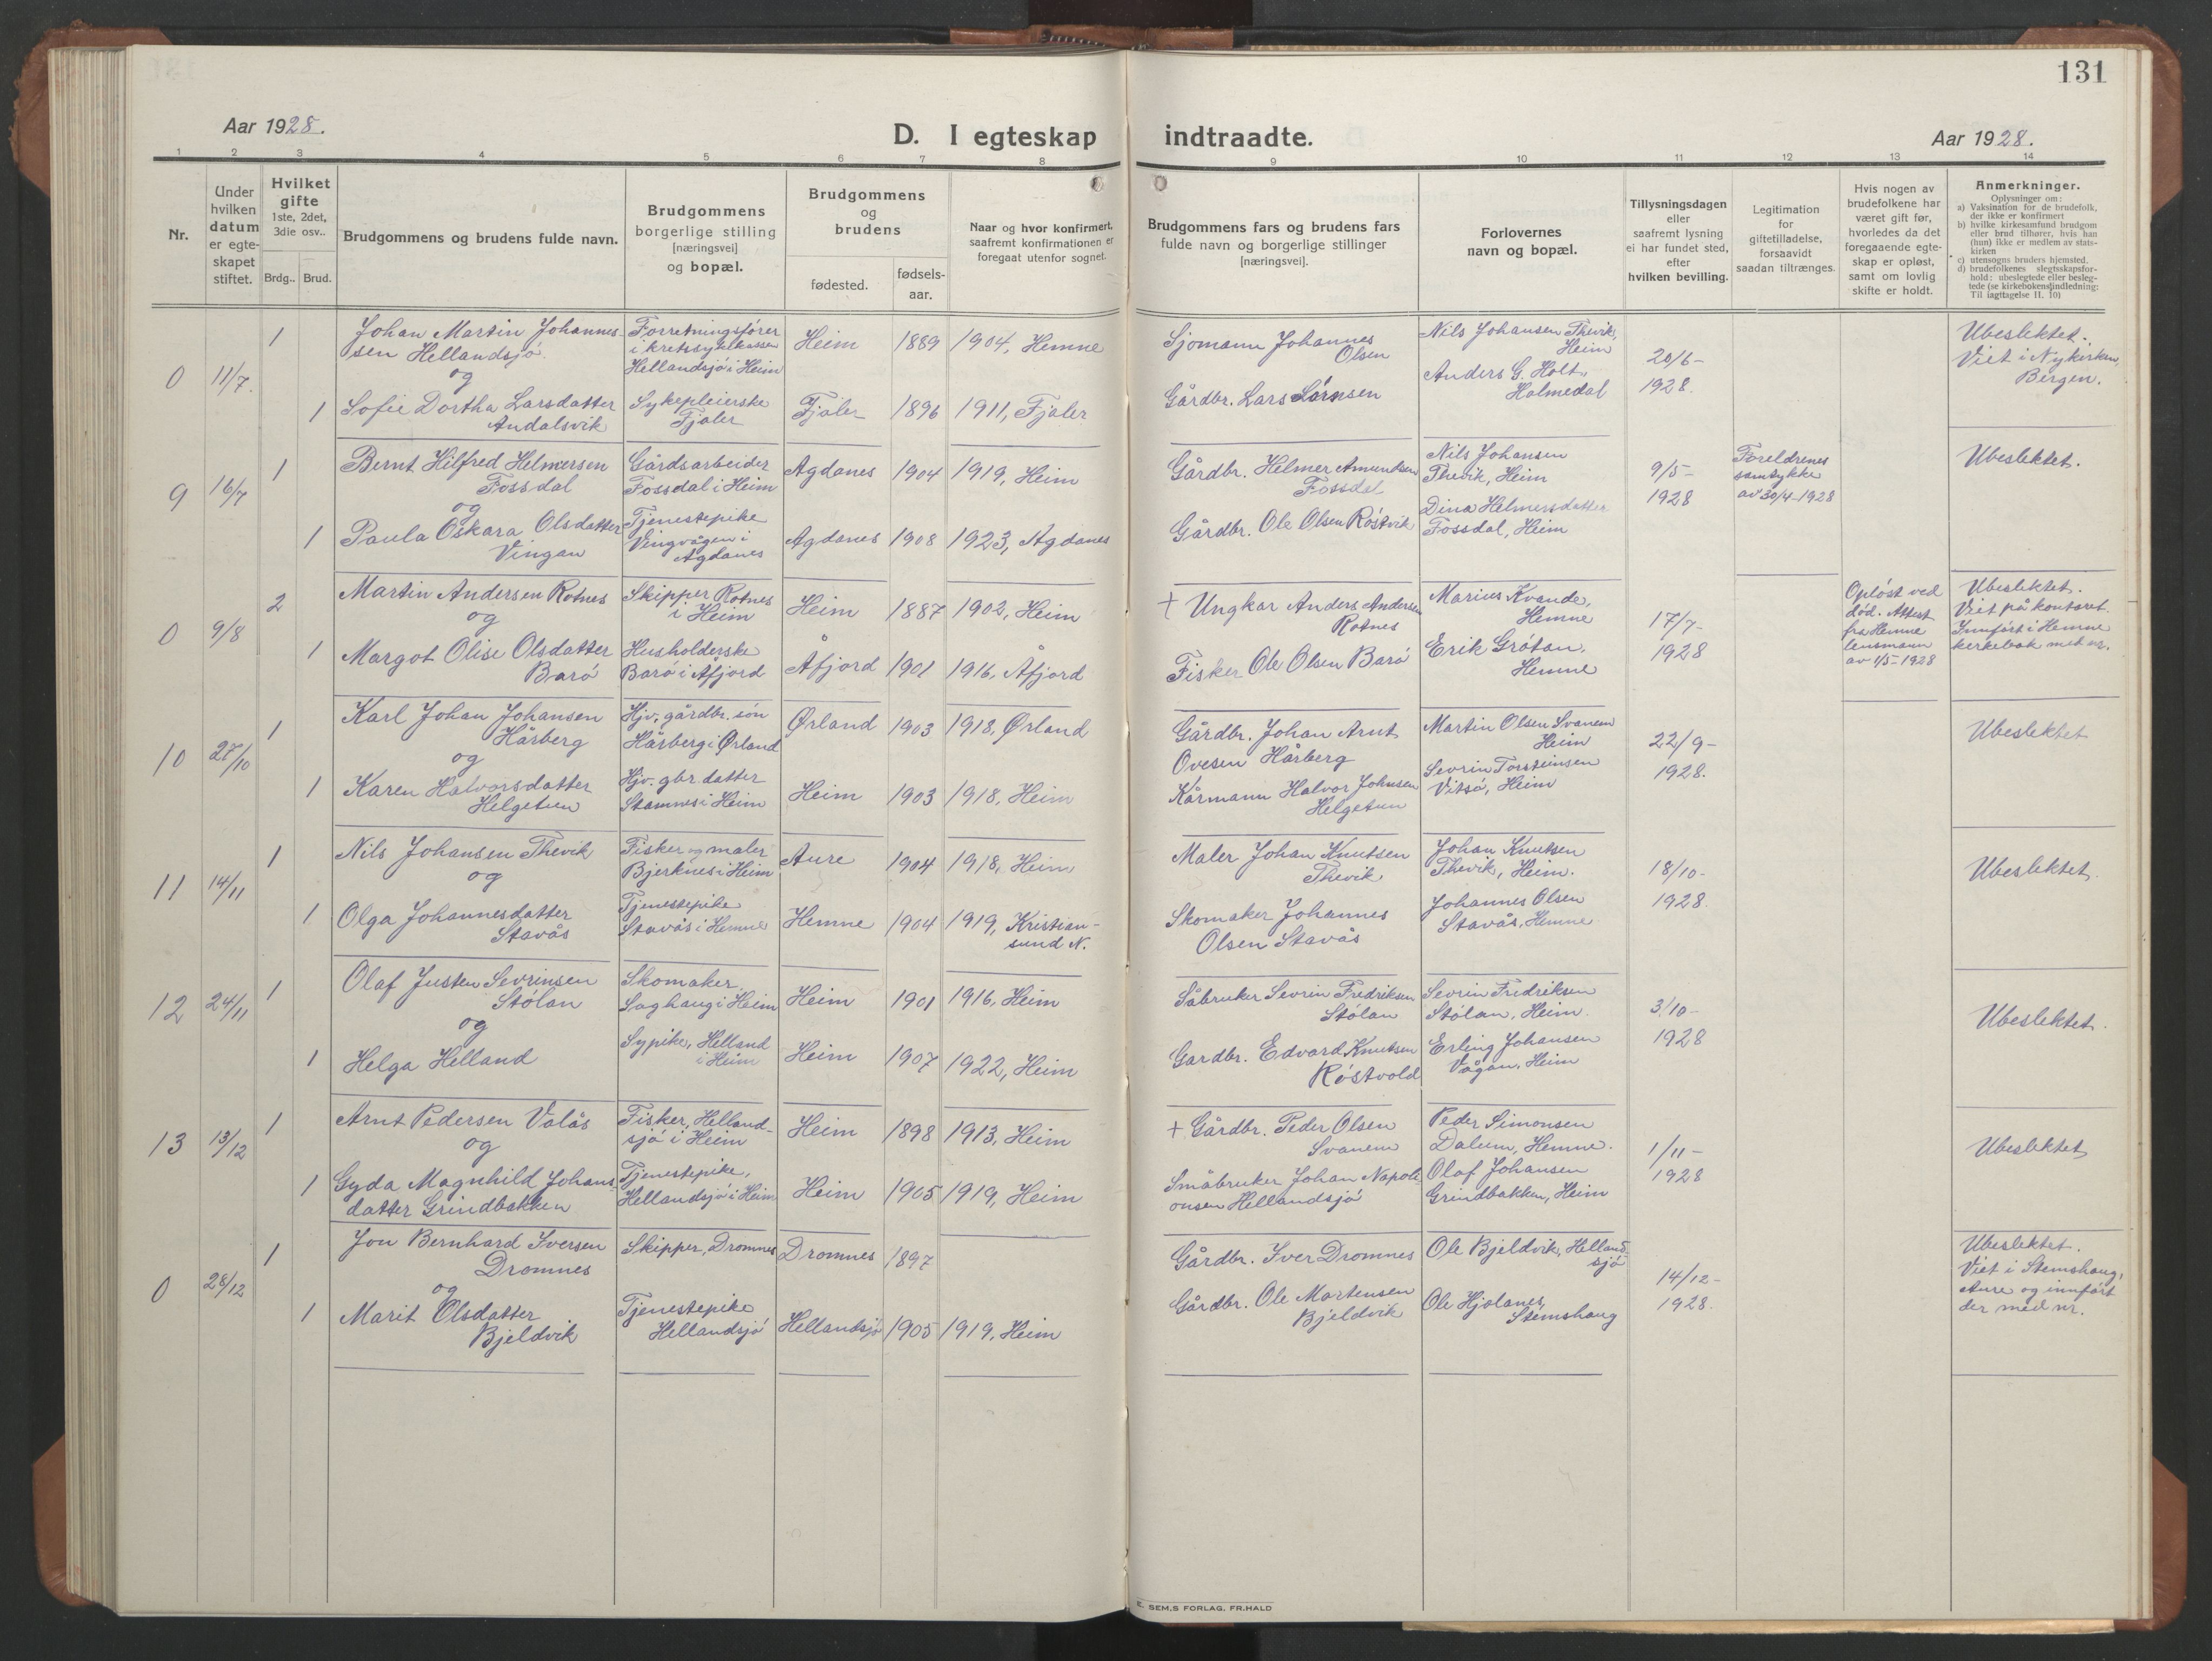 131
Aar 1928.
D. I egteskap indtraadte.
Aar 1928.
1 2 3 4 5 6 7 8 9 10 11 12 13 14
Nr.
Under
hvilken
datum
er egte-
skapet
stiftet.
Hvilket
gifte
1ste, 2det,
3die osv..
Brdg.. Brud.
Brudgommens og brudens fulde navn.
Brudgommens
borgerlige stilling
[næringsvei]
og bopæl.
Brudgommens
og
brudens
fødested.
fødsels-
aar.
Naar og hvor konfirmert,
saafremt konfirmationen er
foregaat utenfor sognet.
Brudgommens fars og brudens fars
fulde navn og borgerlige stillinger
[næringsvei].
Forlovernes
navn og bopæl.
Tillysningsdagen
eller
saafremt lysning
ei har fundet sted,
efter
hvilken bevilling.
Legitimation
for
giftetilladelse,
forsaavidt
saadan tiltrænges.
Hvis nogen av
brudefolkene har
været gift før,
hvorledes da det
foregaaende egte-
skap er opløst,
samt om lovlig
skifte er holdt.
Anmerkninger.
Oplysninger om:
a) Vaksination for de brudefolk,
der ikke er konfirmert
b) hvilke kirkesamfund brudgom
eller brud tilhører, hvis han
(hun) ikke er medlem av stats-
kirken
c) utensogns bruders hjemsted.
d) brudefolkenes slegtsskapsfor-
hold: ubeslegtede eller besleg-
tede (se kirkebokens indledning:
Til iagttagelse II. 10)
0 11/7.
1
Johan Martin Johannes-
sen Hellandsjø
og
1
Sofie Dortha Larsdatter
Andalsvik
Forretningsfører
i kretssykekassen
Hellandsjø i Heim
Sykepleierske
Fjaler
Heim 1889 1904, Hemne
Fjaler 1896 1911, Fjaler.
Sjømann Johannes
Olsen
Gårdbr. Lars Larsen
Nils Johansen Thevik,
Heim
Anders G. Holt,
Holmedal
20/6-
1928.
Ubeslektet.
Viet i Nykirken,
Bergen.
9 16/7
1
Bernt Hilfred Helmersen
Fossdal
og
1
Paula Oskara Olsdatter
Vingan
Gårdsarbeider
Fossdal i Heim
Tjenestepike
Vingvågen i
Agdanes
Agdanes 1904 1919, Heim
Agdanes 1908 1923, Agdanes
Gårdbr. Helmer Amundsen
Fossdal
Gårdbr. Ole Olsen Røstvik
Nils Johansen
Thevik, Heim
Dina Helmersdatter
Fossdal, Heim
9/5-
1928
Foreldrenes
samtykke
av 30/4-1928
Ubeslektet.
0 9/8
2
Martin Andersen Rotnes
og
1
Margot Olise Olsdatter
Barø
Skipper Rotnes
i Heim
Husholderske
Barø i Åfjord
Heim 1887 1902, Heim
Åfjord 1901 1916, Åfjord
+ Ungkar Anders Andersen
Rotnes
Fisker Ole Olsen Barø
Marius Kvande,
Hemne
Erik Grøtan,
Hemne
17/7-
1928
Opløst ved
død. Attest
fra Hemne
lensmann
av 1/5-1928
Ubeslektet.
Viet på kontoret.
Innført i Hemne
kirkebok met nr.
10 27/10
1
Karl Johan Johansen
Hårberg
og
1
Karen Halvorsdatter
Helgetun
Hjv. gårdbr. søn
Hårberg i Ørland
Hjv. gbr. datter
Stamnes i Heim
Ørland 1903 1918, Ørland
Heim 1903 1918, Heim
Gårdbr. Johan Arnt
Ovesen Hårberg
Kårmann Halvor Johnsen
Helgetun
Martin Olsen Svanem
Heim
Sevrin Torsteinsen
Vitsø, Heim
22/9-
1928.
Ubeslektet
11 14/11
1
Nils Johansen Thevik
og
1
Olga Johannesdatter
Stavås
Fisker og maler
Bjerknes i Heim
Tjenestepike
Stavås i Hemne
Aure 1904 1918, Heim
Hemne 1904 1919, Kristian-
sund N.
Maler Johan Knutsen
Thevik
Skomaker Johannes
Olsen Stavås
Johan Knutsen
Thevik, Heim.
Johannes Olsen
Stavås, Hemne
18/10-
1928.
Ubeslektet.
12 24/11
1
Olaf Justen Sevrinsen
Stølan
og
1
Helga Helland
Skomaker,
Saghaug i Heim
Sypike, Helland
i Heim
Heim 1901 1916, Heim
Heim 1907 1922, Heim
Såbruker Sevrin Fredriksen
Stølan
Gardbr. Edvard Knutsen
Røstvold
Sevrin Fredriksen
Stølan, Heim.
Erling Johansen
Vågan, Heim
3/10-
1928
Ubeslektet.
13 13/12
1
Arnt Pedersen Valås
og
1
Gyda Magnhild Johans-
datter Grindbakken
Fisker, Helland-
sjø i Heim
Tjenestepike,
Hellandsjø i Heim
Heim 1898 1913, Heim
Heim 1905 1919, Heim
+ Gårdbr. Peder Olsen
Svanem
Småbruker Johan Napole-
onsen Hellandsjø
Peder Simonsen
Dalum, Hemne.
Olaf Johansen
Grindbakken, Heim
1/11-
1928
Ubeslektet
0 28/12
1
Jon Bernhard Iversen
Dromnes
og
1
Marit Olsdatter
Bjeldvik
Skipper, Dromnes
Tjenestepike
Hellandsjø
Dromnes 1897
Hellandsjø 1905 1919, Heim
Gårdbr. Iver Dromnes
Gårdbr. Ole Martensen
Bjeldvik
Ole Bjeldvik, Helland-
sjø
Ole Hjølanes,
Stemshaug
14/12-
1928.
Ubeslektet.
Viet i Stemshaug,
Aure og innført
der med nr.
E. SEM,S FORLAG, FR.HALD